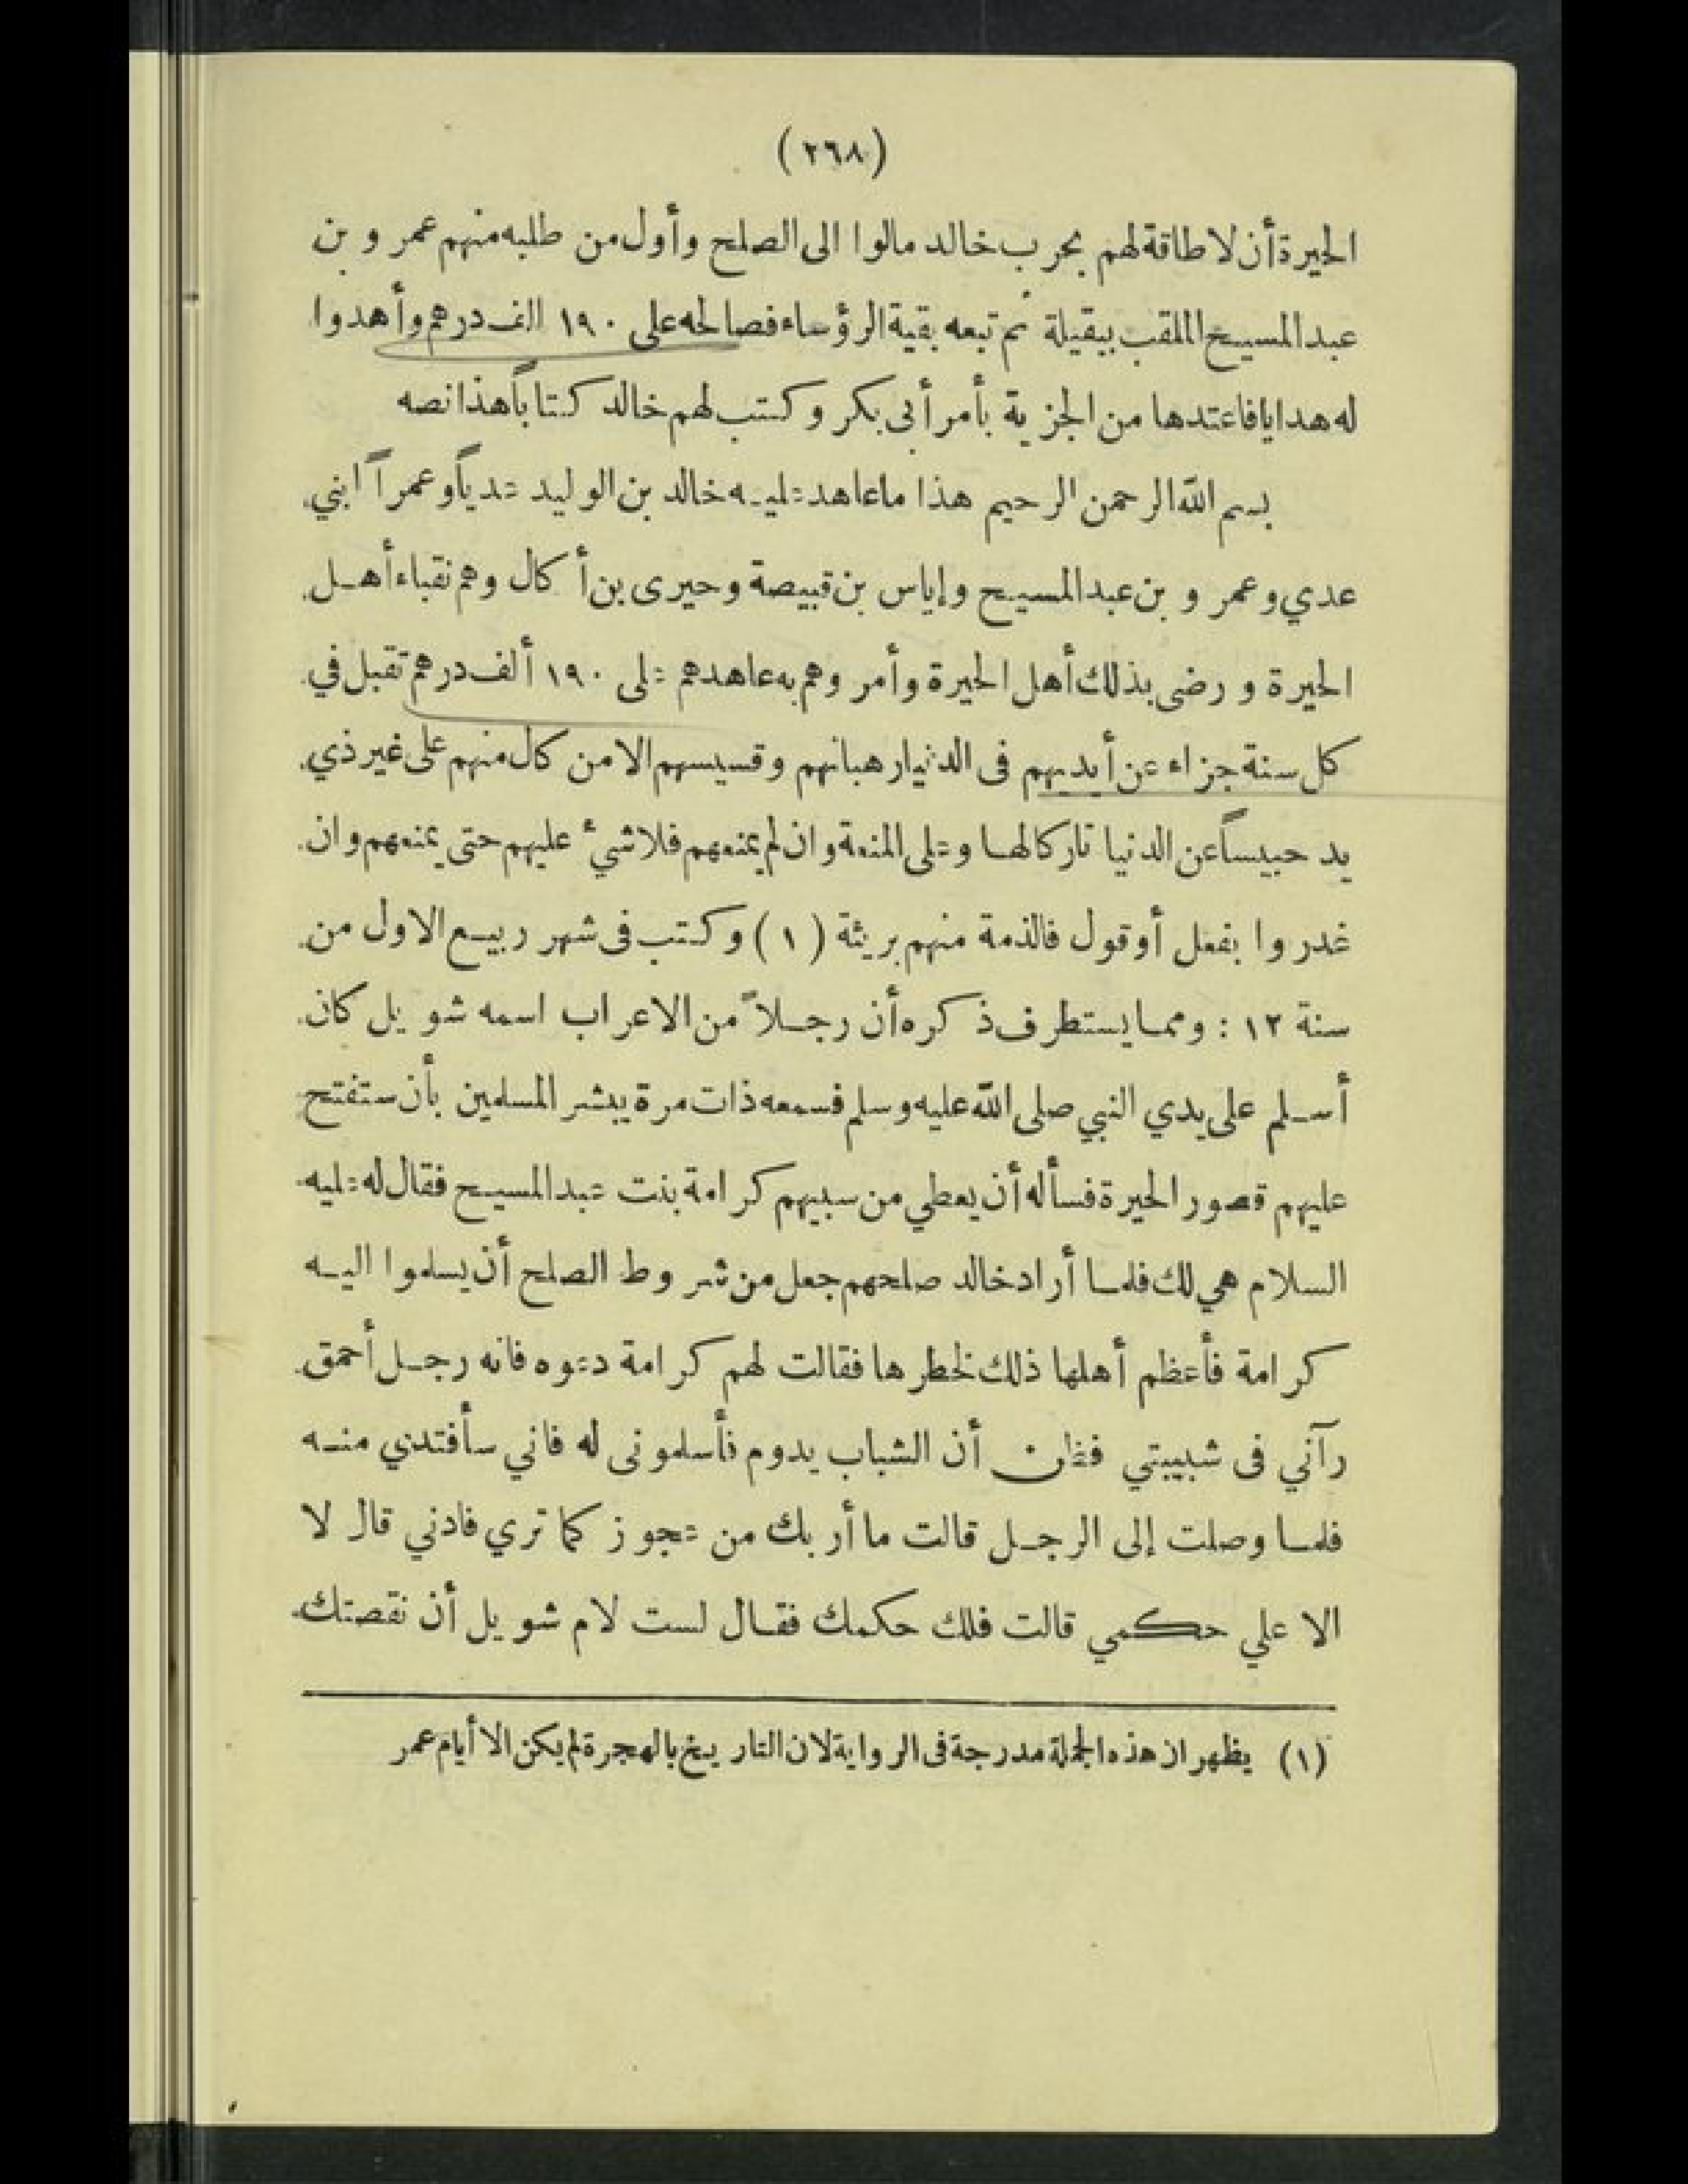 (٢٦٨)
الحيرة أن لا طاقة لهم بحرب خالد مالوا الى الصلح وأول من طلبه منهم عمرو بن
عبد المسيح الملقب ببقيلة ثم تبعه بقية الرؤساء فصالحه على ١٩٠ الف درهم وأهدوا
له هدايا فاعتدها من الجزية بأمر أبى بكر وكتب لهم خالد كتاباً هذا نصه
بسم الله الرحمن الرحيم هذا ما عاهد عليه خالد بن الوليد عدياً وعمراً ابني
عدي وعمرو بن عبد المسيح وإياس بن قبيصة وحيرى بن أكال وهم نقباء أهل
الحيرة ورضى بذلك أهل الحيرة وأمروهم به عاهدهم على ١٩٠ ألف درهم تقبل في
كل سنة جزاء عن أيديهم فى الدنيا رهبانهم وقسيسهم الا من كان منهم على غير ذي
يد حبيساً عن الدنيا تاركا لها وعلى المنعة وان لم يمنعهم فلا شيء عليهم حتى يمنعهم وان
غدروا بفعل أو قول فالذمة منهم بريئة (١) وكتب فى شهر ربيع الاول من
سنة ١٢ : ومما يستطرف ذكره أن رجلاً من الاعراب اسمه شويل كان
أسلم على يدي النبي صلى الله عليه وسلم فسمعه ذات مرة يبشر المسلمين بأن ستفتح
عليهم قصور الحيرة فسأله أن يعطي من سبيهم كرامة بنت عبد المسيح فقال له عليه
السلام هي لك فلما أراد خالد صلحهم جعل من شروط الصلح أن يسلموا اليه
كرامة فأعظم أهلها ذلك لخطرها فقالت لهم كرامة دعوه فانه رجل أحمق
رآني فى شبيبتي فظن أن الشباب يدوم فأسلمونى له فاني سأفتدي منه
فلما وصلت إلى الرجل قالت ما أربك من عجوز كما تري فادني قال لا
الا علي حكمي قالت فلك حكمك فقال لست لام شويل أن نقصتك
(١) يظهر ان هذه الجملة مدرجة فى الرواية لان التاريخ بالهجرة لم يكن الا أيام عمر